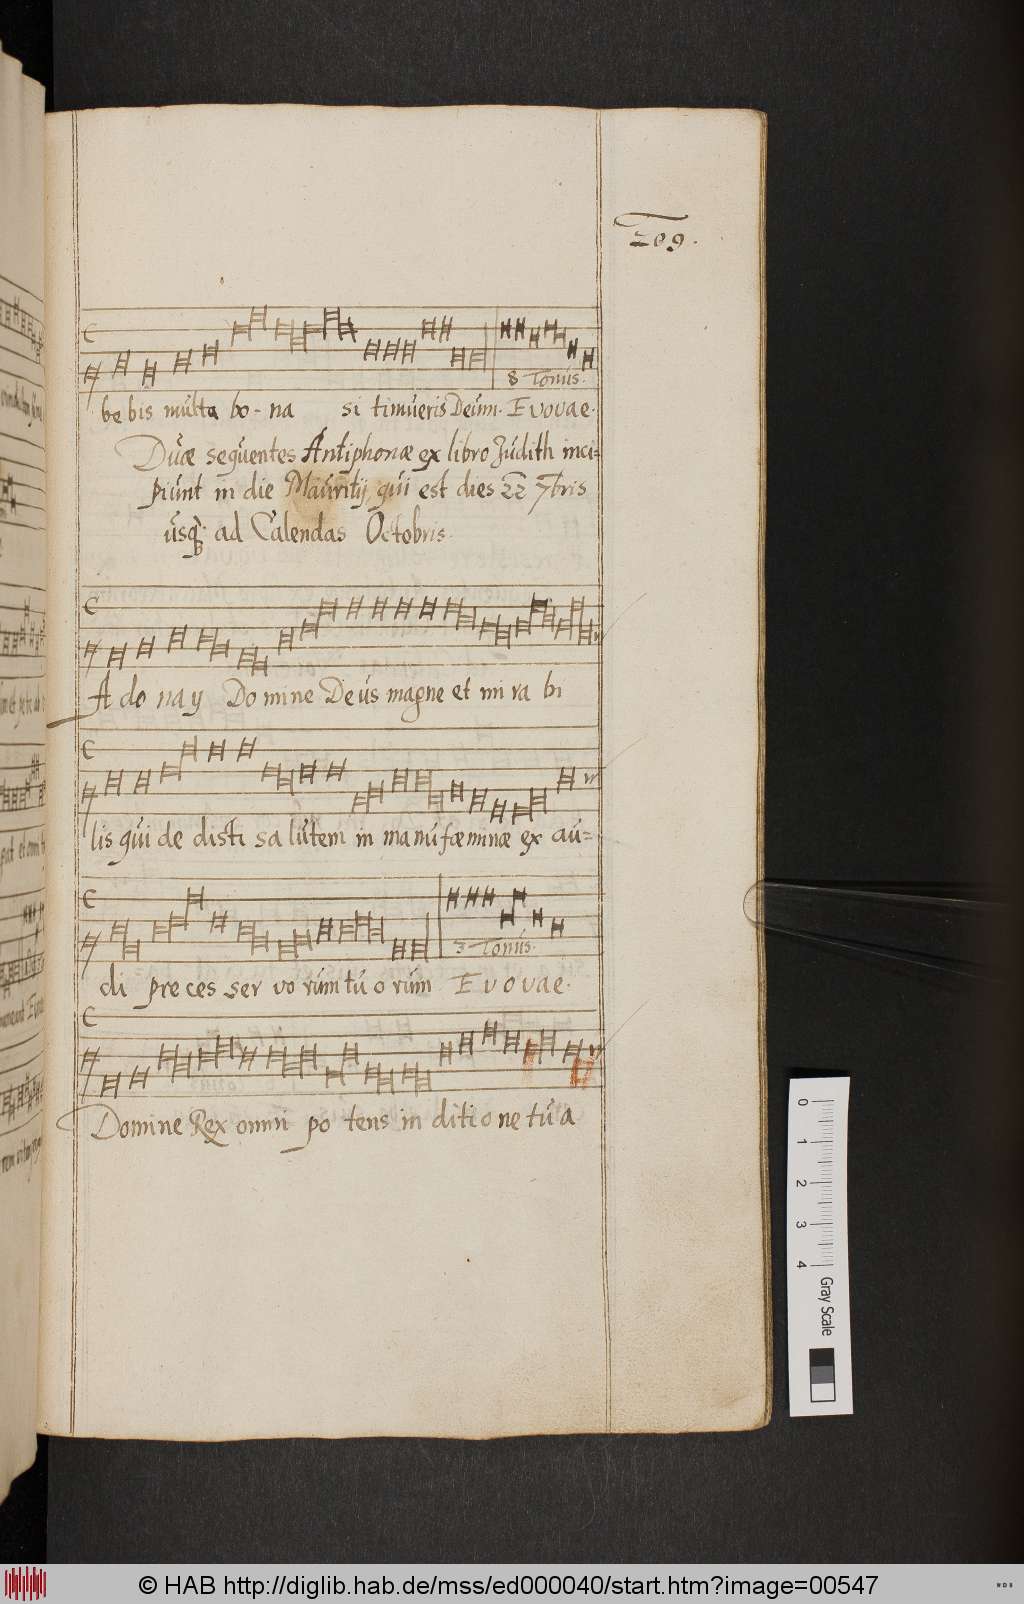 209.
8 Tonús.
be bis múlta bo - na si timúeris Deúm. Evovae.
Dúæ seqúentes Antiphonæ ex libro Júdith inci=
piúnt in die Maúritij, qúi est dies 22 7bris
úsq; ad Calendas Octobris.
A do nay Do mine De ús magne et mi ra bi
lis qúi de disti sa lútem in ma nú fæminæ ex aú=
3 Tonús.
di pre ces ser vo rúm tú o rúm E v o v a e.
Domine Rex omni po tens in diti o ne tú a
0 1 2 3 4 Gray Scale
© HAB http://diglib.hab.de/mss/ed000040/start.htm?image=00547